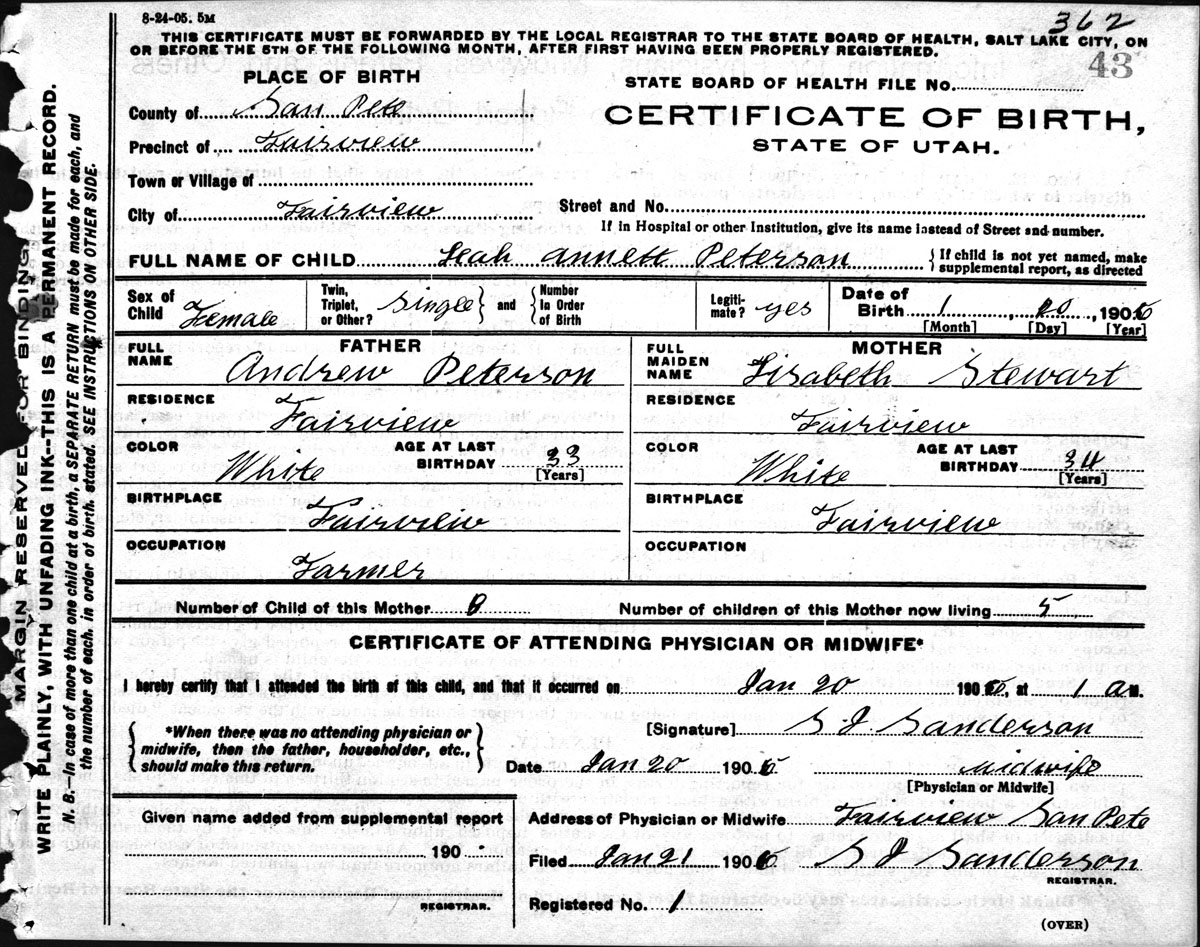 8-24-05. 5M
362
THIS CERTIFICATE MUST BE FORWARDED BY THE LOCAL REGISTRAR TO THE STATE BOARD OF HEALTH, SALT LAKE CITY, ON
OR BEFORE THE 5TH OF THE FOLLOWING MONTH, AFTER FIRST HAVING BEEN PROPERLY REGISTERED.
43
PLACE OF BIRTH
STATE BOARD OF HEALTH FILE No.
County of San Pete
CERTIFICATE OF BIRTH,
Precinct of Fairview
STATE OF UTAH.
Town or Village of
City of Fairview
Street and No.
If in Hospital or other Institution, give its name instead of Street and number.
FULL NAME OF CHILD Leah Annett Peterson { If child is not yet named, make
supplemental report, as directed
Sex of Child Female
Twin, Triplet, or Other? Single } and { Number In Order of Birth
Legiti-mate? yes
Date of Birth 1, 20, 1906
[Month] [Day] [Year]
FATHER
FULL NAME Andrew Peterson
MOTHER
FULL MAIDEN NAME Lisabeth Stewart
RESIDENCE Fairview
RESIDENCE Fairview
COLOR White AGE AT LAST BIRTHDAY 33 [Years]
COLOR White AGE AT LAST BIRTHDAY 34 [Years]
BIRTHPLACE Fairview
BIRTHPLACE Fairview
OCCUPATION Farmer
OCCUPATION
Number of Child of this Mother
Number of children of this Mother now living 5
CERTIFICATE OF ATTENDING PHYSICIAN OR MIDWIFE*
I hereby certify that I attended the birth of this child, and that it occurred on Jan 20 1906, at 1 a M.
{ *When there was no attending physician or
midwife, then the father, householder, etc.,
should make this return. }
[Signature] S J Sanderson
Date Jan 20 1906 Midwife
[Physician or Midwife]
Given name added from supplemental report
190
REGISTRAR.
Address of Physician or Midwife Fairview San Pete
Filed Jan 21 1906 S J Sanderson
REGISTRAR.
Registered No. 1
(OVER)
MARGIN RESERVED FOR BINDING.
WRITE PLAINLY, WITH UNFADING INK--THIS IS A PERMANENT RECORD.
N. B.--In case of more than one child at a birth, a SEPARATE RETURN must be made for each, and
the number of each, in order of birth, stated. SEE INSTRUCTIONS ON OTHER SIDE.